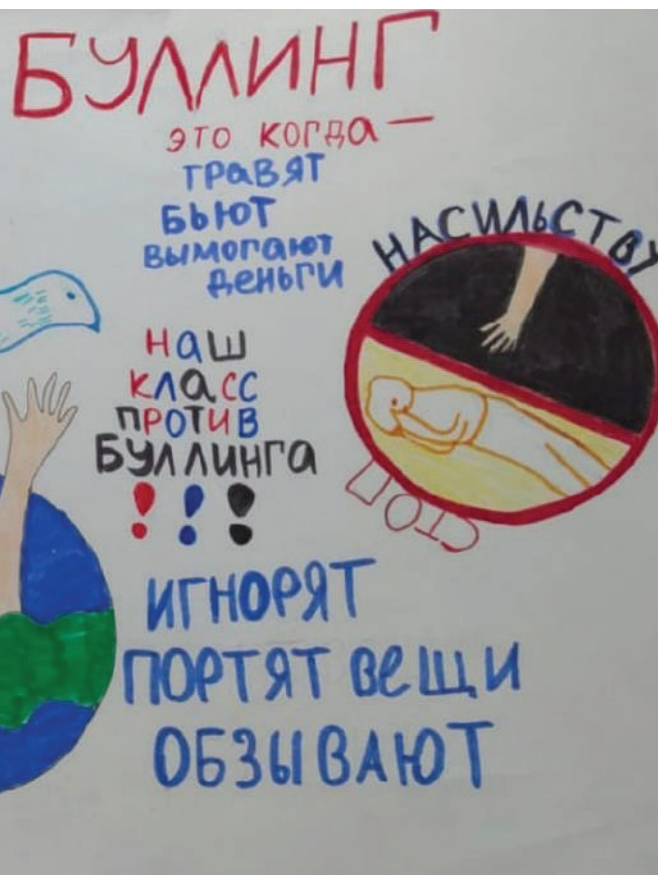 БУЛЛИНГ
это когда —
травят
бьют
вымогают
деньги
НАСИЛЬСТВУ
наш
класс
против
БУЛЛИНГА
! ! !
СТОП
ИГНОРЯТ
ПОРТЯТ вещи
ОБЗЫВАЮТ